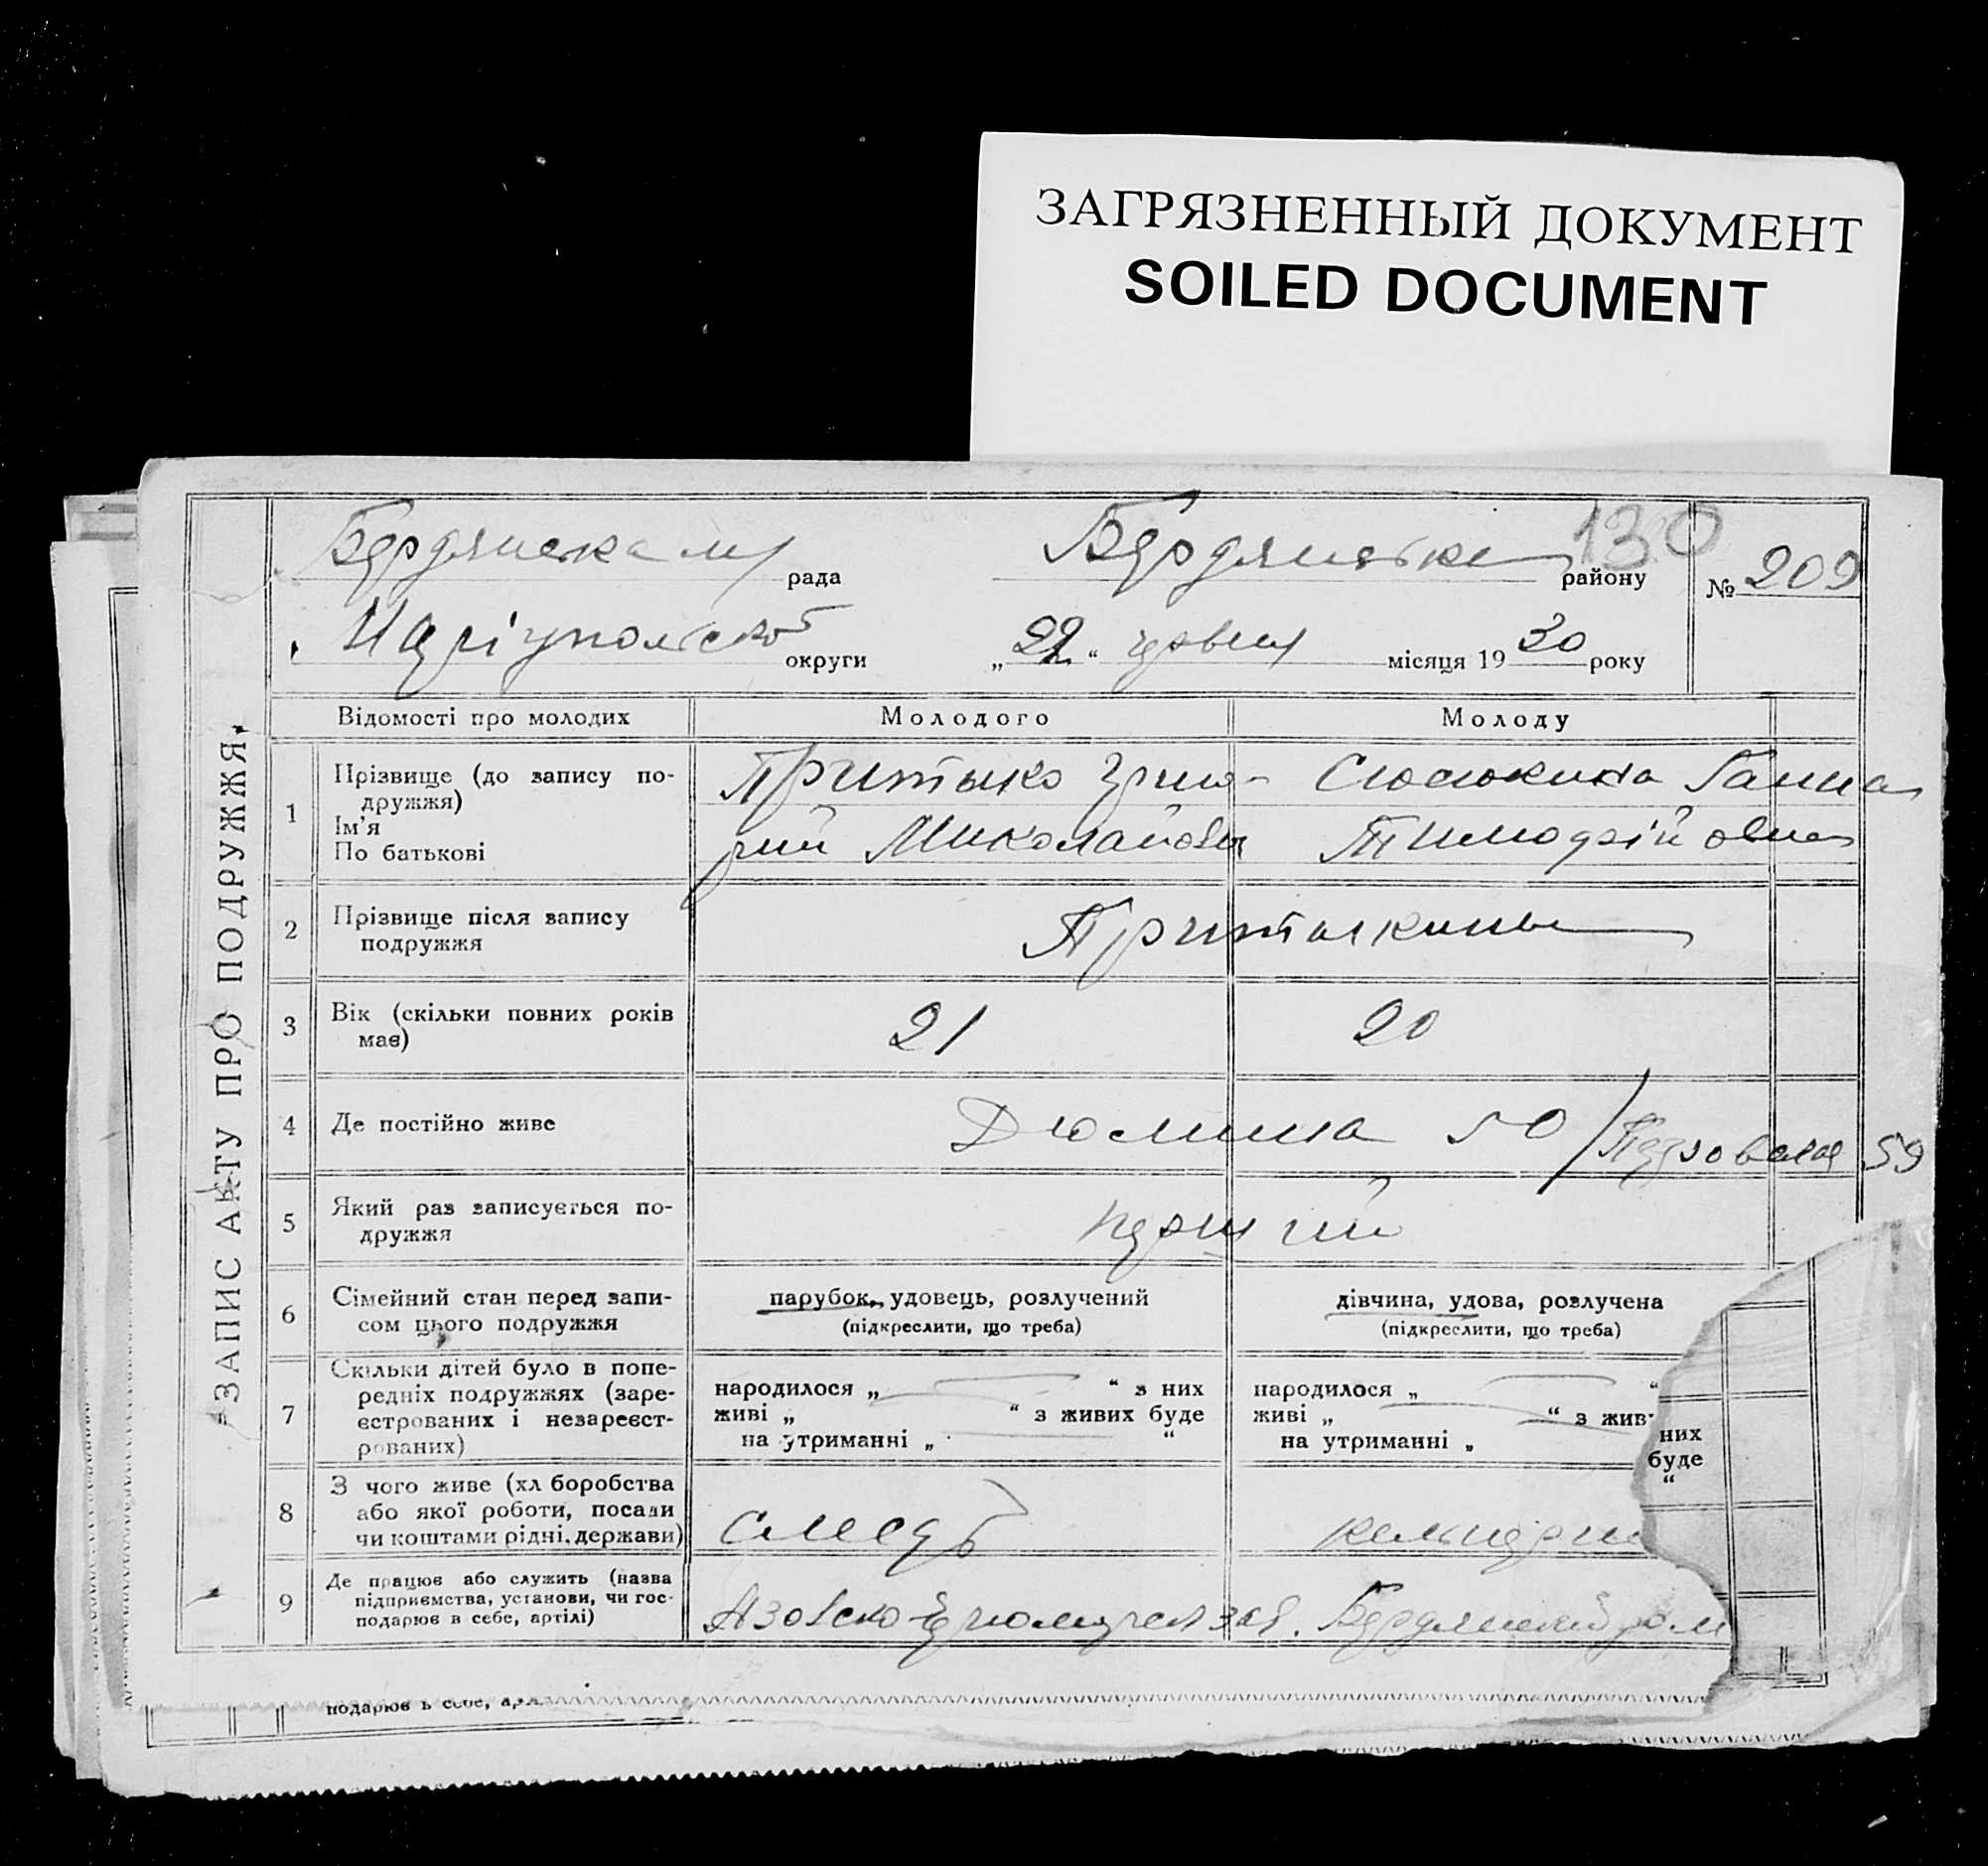 ЗАГРЯЗНЕННЫЙ ДОКУМЕНТ
SOILED DOCUMENT
ЗАПИС АКТУ ПРО ПОДРУЖЖЯ
130
рада
району
№ 209
Маріупольской округи „22“ червня місяця 1930 року
Відомості про молодих Молодого Молоду
1 Прізвище (до запису по-
дружжя)
Ім'я
По батькові
Притыко Григо-
рий Миколайов
Сюсюкина Ганна
Тимофійовна
2 Прізвище після запису
подружжя
Притыкины
3 Вік (скільки повних років
має)
21 20
4 Де постійно живе
Дюмина 50 / 59
5 Який раз записується по-
дружжя
перший
6 Сімейний стан перед запи-
сом цього подружжя
парубок, удовець, розлучений
(підкреслити, що треба)
дівчина, удова, розлучена
(підкреслити, що треба)
7 Скільки дітей було в попе-
редніх подружжях (заре-
єстрованих і незареєст-
рованих)
народилося „ “ з них
живі „ “ з живих буде
на утриманні „ “
народилося „ “
живі „ “ з жив
на утриманні „
них
буде
“
8 З чого живе (хл боробства
або якої роботи, посади
чи коштами рідні, держави)
9 Де працює або служить (назва
підприємства, установи, чи гос-
подарює в себе, артілі)
подарює в себе, арт